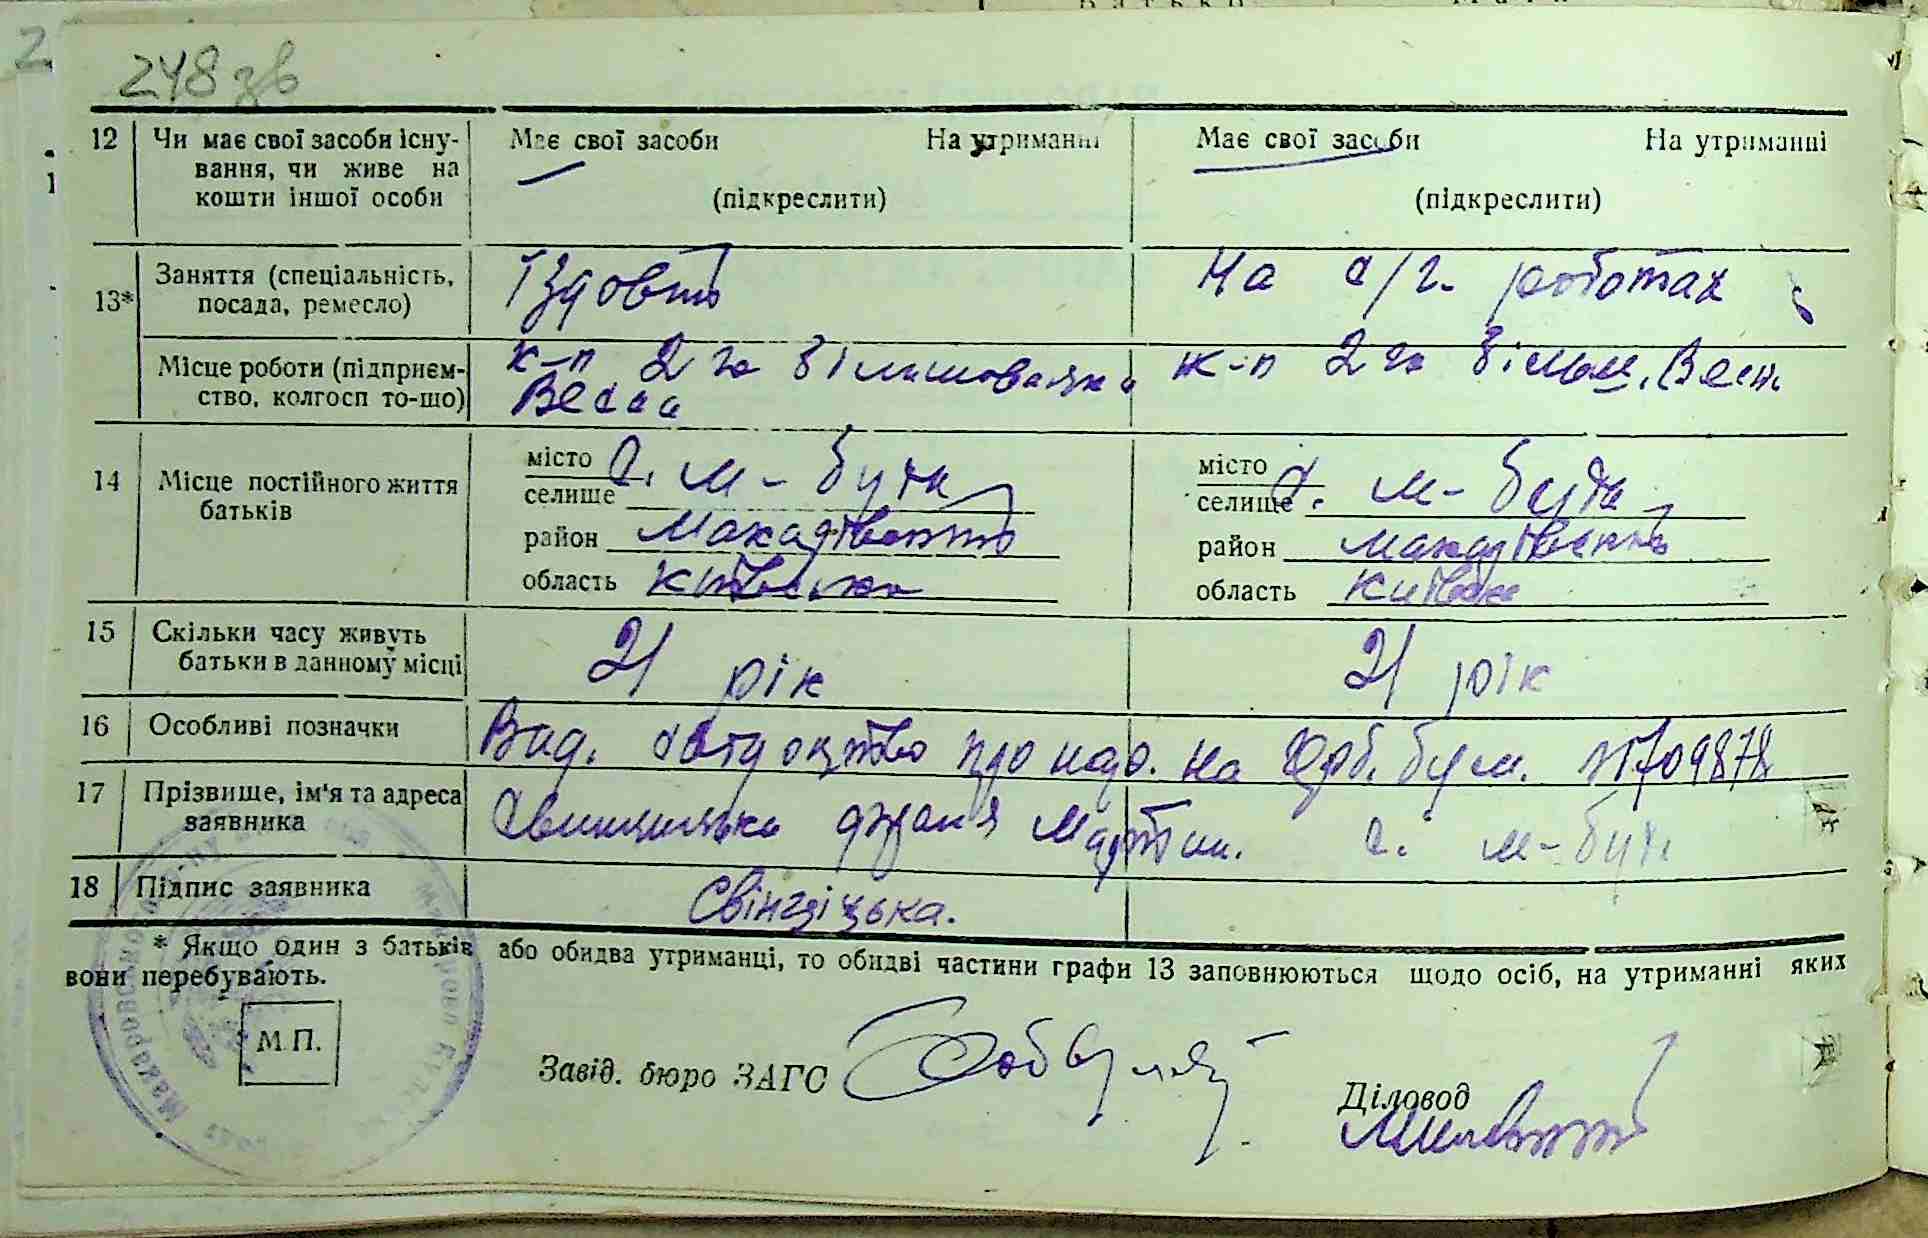 248 зв
12 Чи має свої засоби існу- Має свої засоби На утриманні Має свої засоби На утриманні
вання, чи живе на
кошти іншої особи (підкреслити) (підкреслити)
13* Заняття (спеціальність, Їздовий На с/г. роботах
посада, ремесло)
Місце роботи (підприєм- к-п 2га більшовицька к-п 2га більш. Весн.
ство, колгосп то-що) Весна
14 Місце постійного життя місто с. М-Буда місто с. М-Буда
батьків селище селище
район Макарівський район Макарівський
область Київська область Київська
15 Скільки часу живуть 21 рік 21 рік
батьки в данному місці
16 Особливі позначки Вид. свідоцтво про нар. на бум. 709878
17 Прізвище, ім'я та адреса Мартин. с. М-Буда
заявника
18 Підпис заявника Свінціцька.
* Якщо один з батьків або обидва утриманці, то обидві частини графи 13 заповнюються щодо осіб, на утриманні яких
вони перебувають.
М.П.
Завід. бюро ЗАГС
Діловод